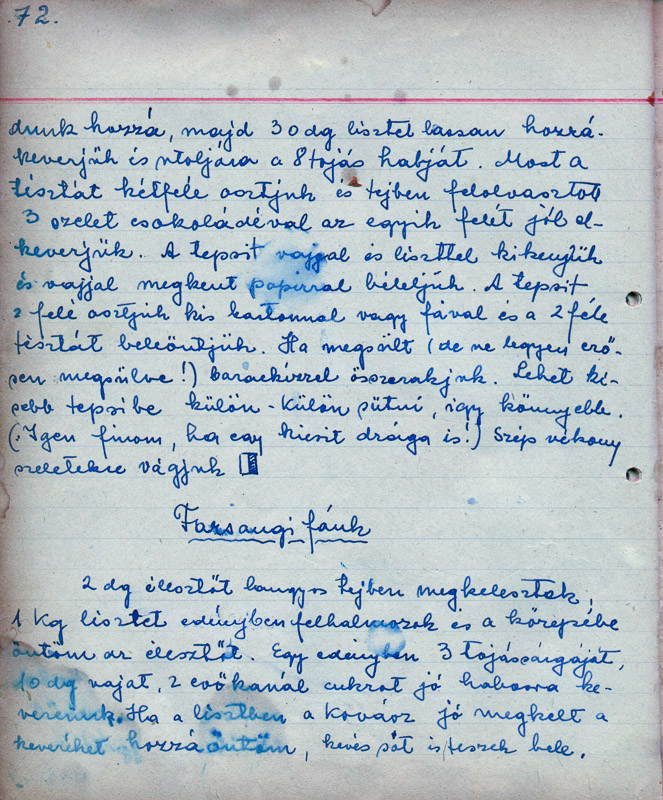 72.
dunk hozzá, majd 30 dg lisztet lassan hozzá-
keverjük és utoljára a 8 tojás habját. Most a
tésztát kétféle osztjuk és tejben felolvasztott
3 szelet csokoládéval az egyik felét jól el-
keverjük. A tepsit vajjal és liszttel kikenjük
és vajjal megkent papirral béleljük. A tepsit
2 felé osztjuk kis kartonnal vagy fával és a 2 féle
tésztát beleöntjük. Ha megsült (de ne legyen erő-
sen megsülve!) barackízzel összerakjuk. Lehet ki-
sebb tepsibe külön-külön sütni, így könnyebb.
(Igen finom, ha egy kicsit drága is!) Szép vékony
szeletekre vágjuk
Farsangi fánk
2 dg élesztőt langyos tejben megkelesztek,
1 Kg lisztet edényben felhalmozok és a közepébe
öntöm az élesztőt. Egy edényben 3 tojássárgáját,
10 dg vajat, 2 evőkanál cukrot jó habosra ke-
verünk. Ha a lisztben a kovász jó megkelt a
keveréket hozzá öntöm, kevés sót is teszek bele.